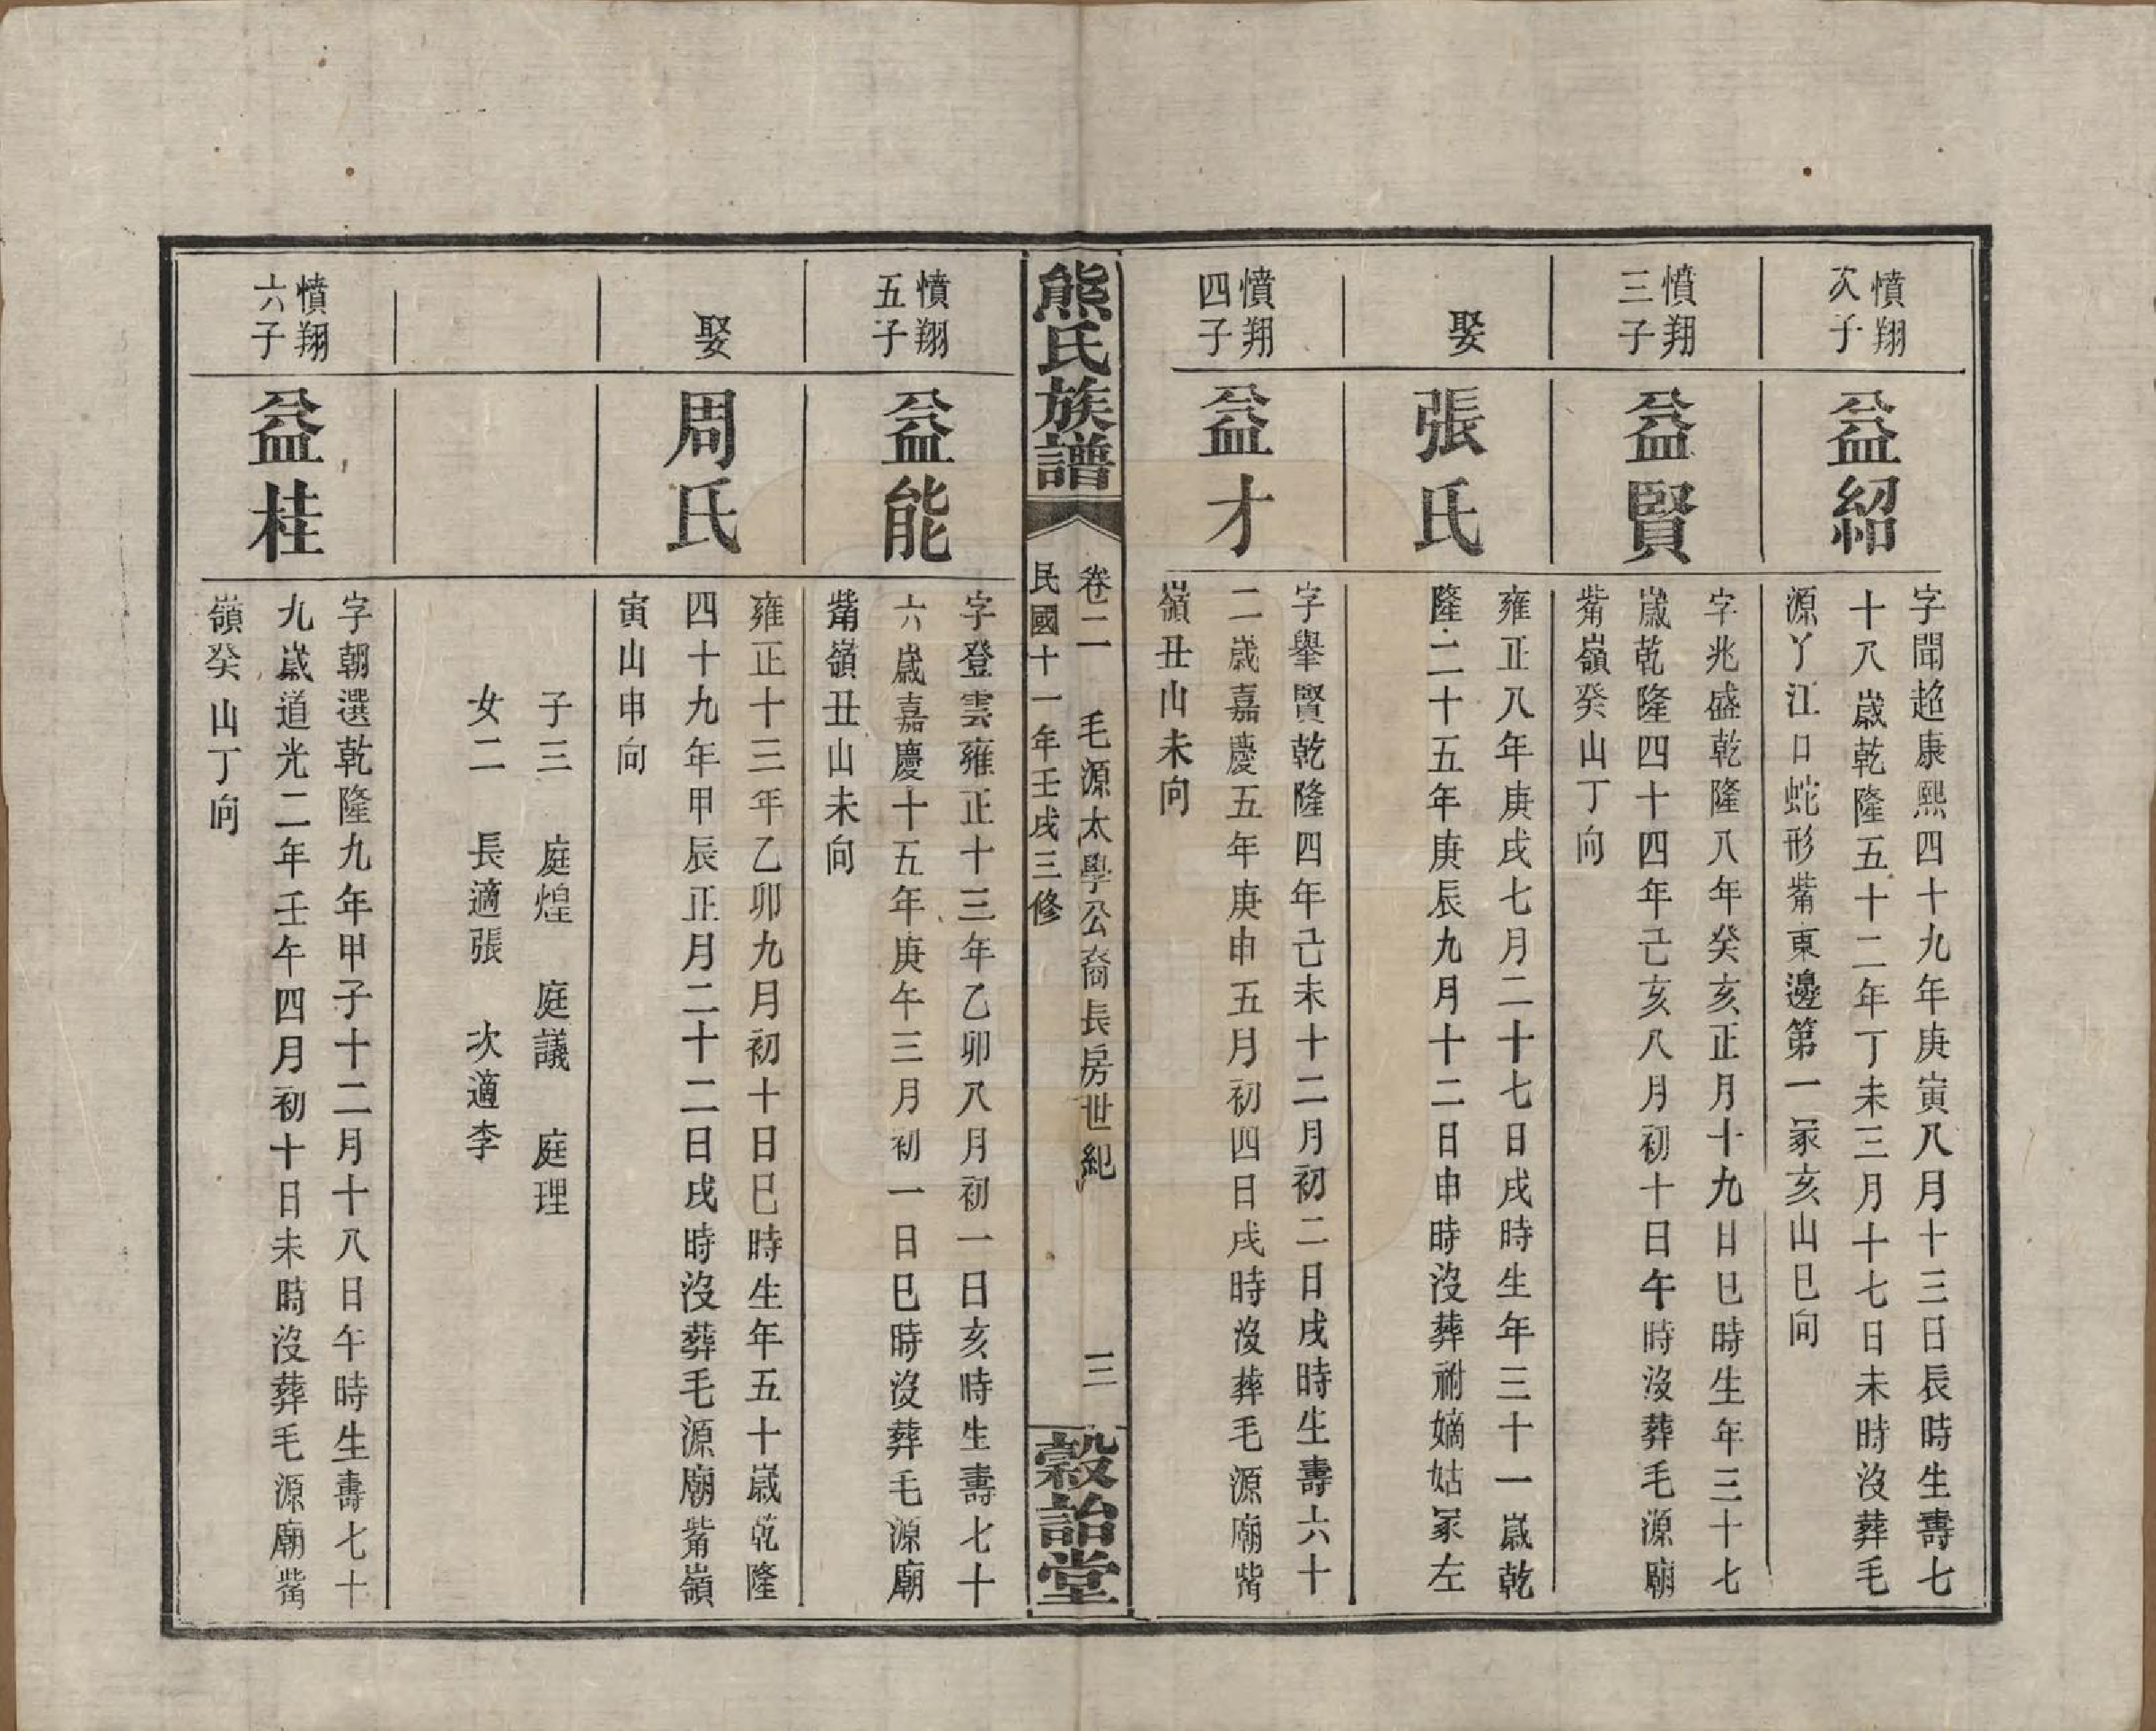 憤翔
次子
益紹
字聞超康熙四十九年庚寅八月十三日辰時生壽七
十八歲乾隆五十二年丁未三月十七日未時沒葬毛
源丫江口蛇形觜東邊第一冢亥山巳向
憤翔
三子
益賢
字兆盛乾隆八年癸亥正月十九日巳時生年三十七
歲乾隆四十四年己亥八月初十日午時沒葬毛源廟
觜嶺癸山丁向
娶
張氏
雍正八年庚戌七月二十七日戌時生年三十一歲乾
隆二十五年庚辰九月十二日申時沒葬祔嫡姑冢左
憤翔
四子
益才
字舉賢乾隆四年己未十二月初二日戌時生壽六十
二歲嘉慶五年庚申五月初四日戌時沒葬毛源廟觜
嶺丑山未向
熊氏族譜
卷二 毛源太學公裔長房世紀 三
民國十一年壬戌三修
穀詒堂
憤翔
五子
益能
字登雲雍正十三年乙卯八月初一日亥時生壽七十
六歲嘉慶十五年庚午三月初一日巳時沒葬毛源廟
觜嶺丑山未向
娶
周氏
雍正十三年乙卯九月初十日巳時生年五十歲乾隆
四十九年甲辰正月二十二日戌時沒葬毛源廟觜嶺
寅山申向
子三 庭煌 庭議 庭理
女二 長適張 次適李
憤翔
六子
益桂
字朝選乾隆九年甲子十二月十八日午時生壽七十
九歲道光二年壬午四月初十日未時沒葬毛源廟觜
嶺癸山丁向